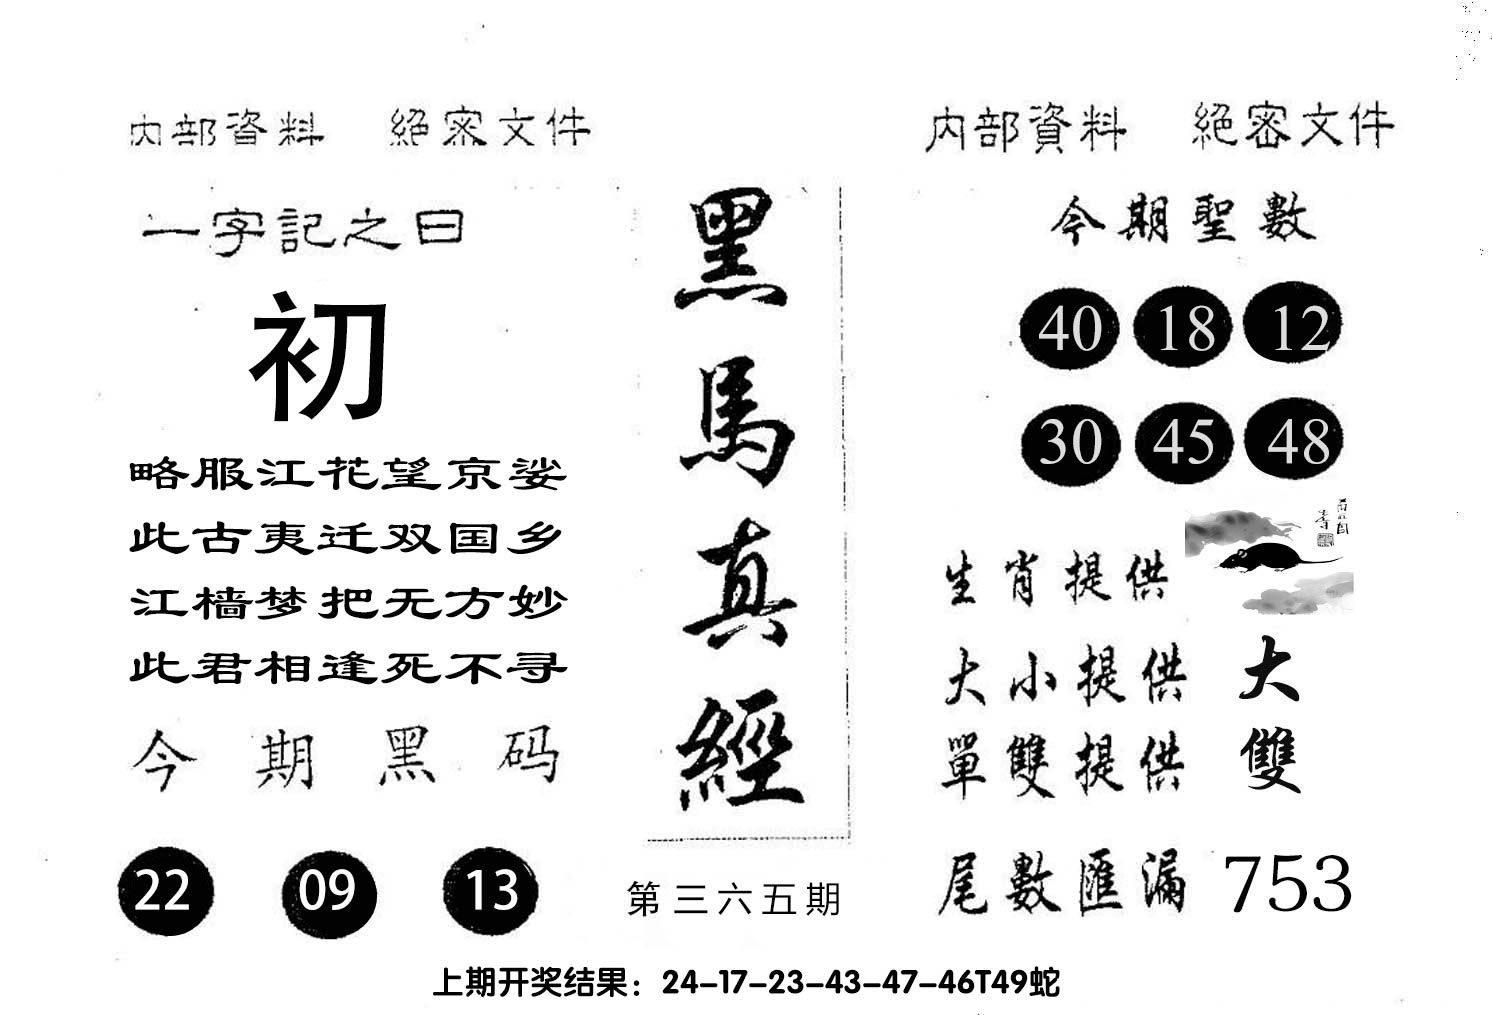 内部資料 絕密文件
一字記之曰
初
略服江花望京娑
此古夷迁双国乡
江樯梦把无方妙
此君相逢死不寻
今期黑码
22 09 13
黑馬真經
第三六五期
内部資料 絕密文件
今期聖數
40 18 12
30 45 48
生肖提供
大小提供 大
單雙提供 雙
尾數匯漏 753
上期开奖结果：24-17-23-43-47-46T49蛇